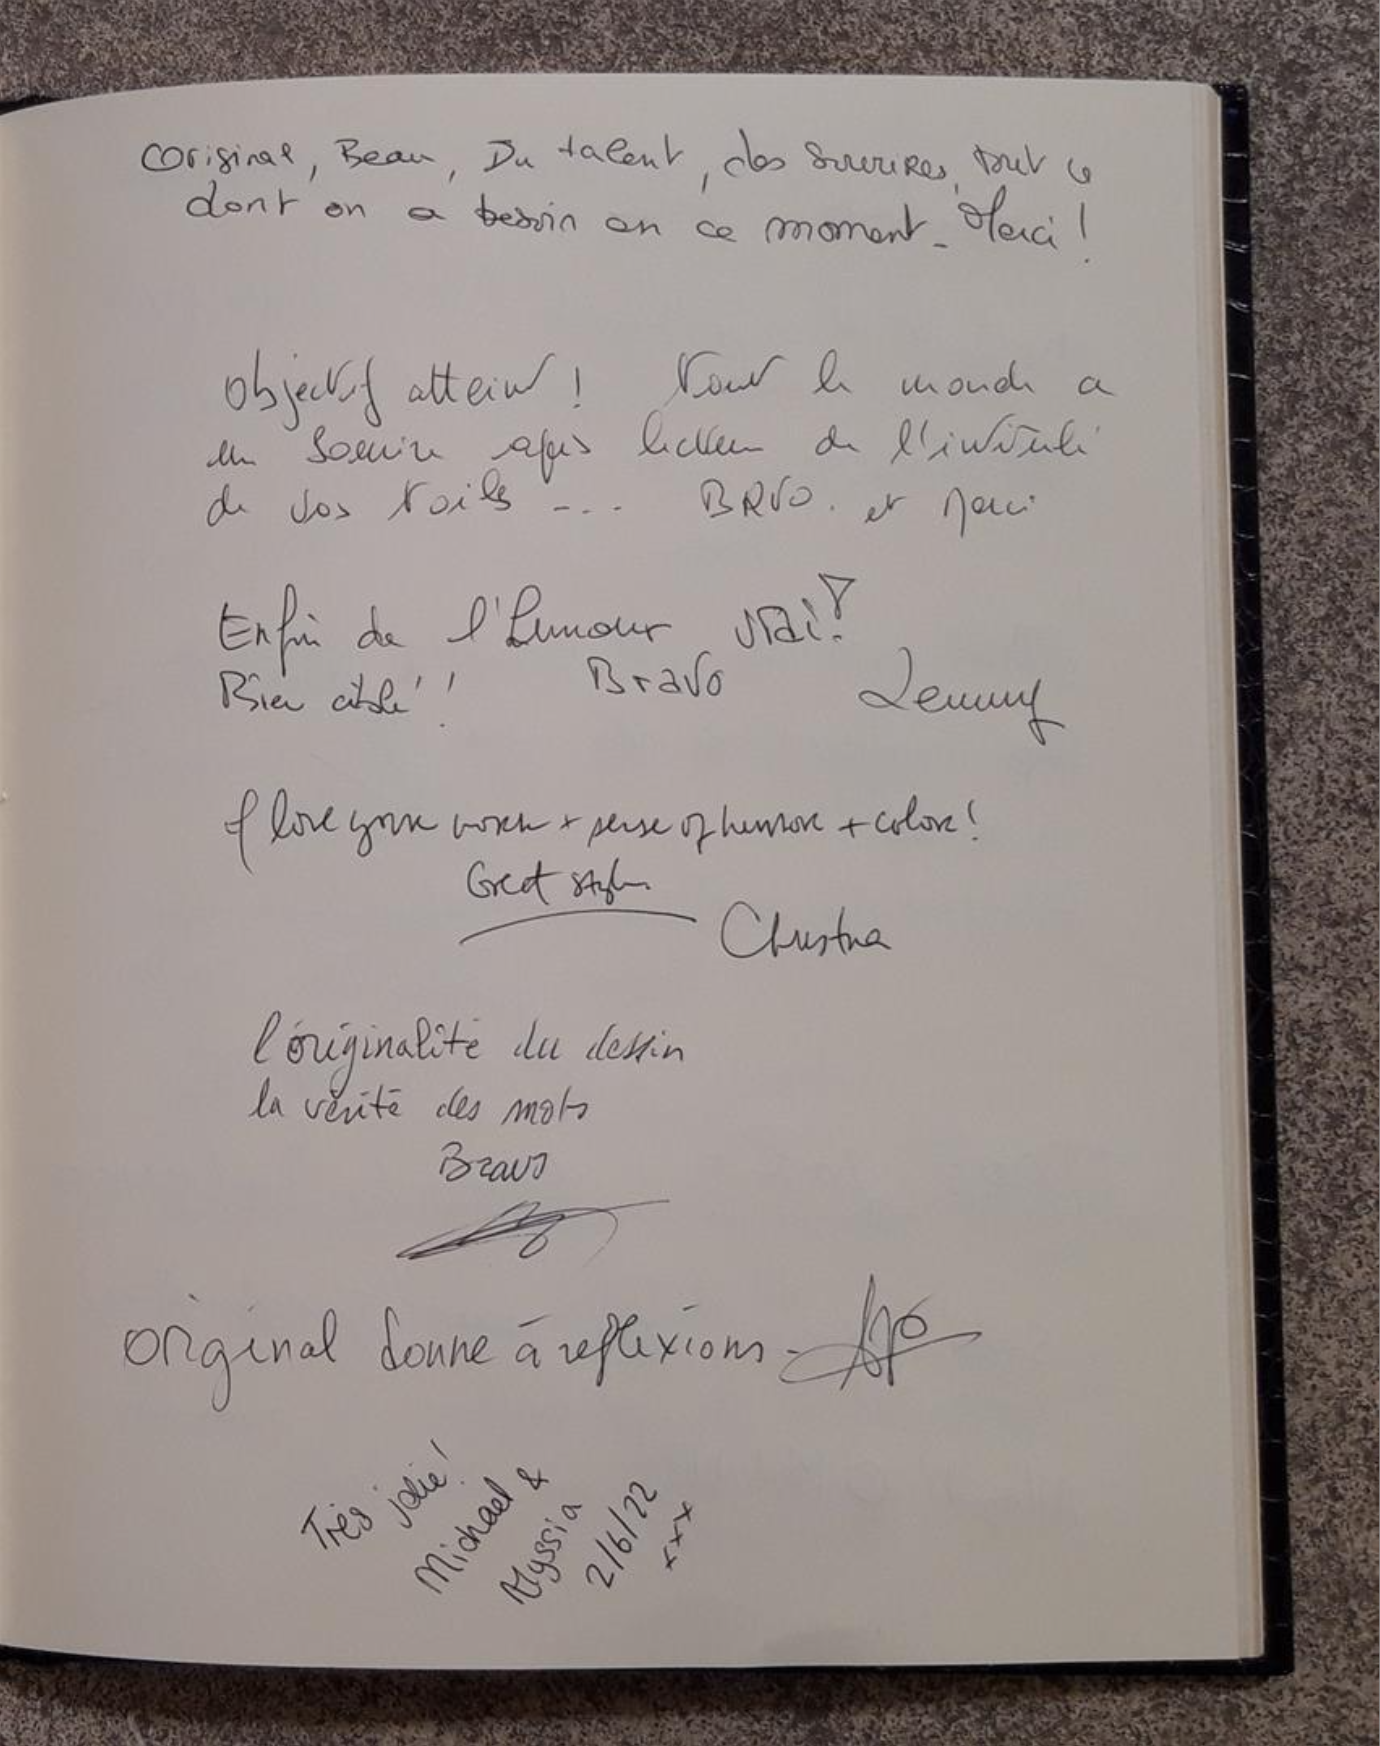 Original, Beau, Du talent, des sourires, tout ce
dont on a besoin en ce moment - Merci !
Objectif atteint ! Tout le monde a
un sourire après lecture de l'intitulé
de vos toiles --- BRVO. et merci
Enfin de l'humour vrai !
Bien ciblé !! Bravo Lemmy
I love your work + sense of humor + color !
Great style
Christina
l'originalité du dessin
la vérité des mots
Bravo
original donne à reflexions -
Très jolie !
Michael &
Alyssia
2/6/22
xxx